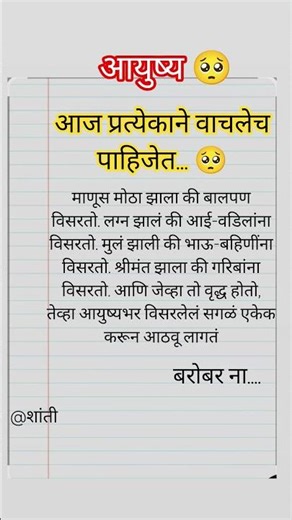 आयुष्य 🥺
आज प्रत्येकाने वाचलेच
पाहिजेत... 🥺
माणूस मोठा झाला की बालपण
विसरतो. लग्न झालं की आई-वडिलांना
विसरतो. मुलं झाली की भाऊ-बहिणींना
विसरतो. श्रीमंत झाला की गरिबांना
विसरतो. आणि जेव्हा तो वृद्ध होतो,
तेव्हा आयुष्यभर विसरलेलं सगळं एकेक
करून आठवू लागतं
बरोबर ना....
@शांती